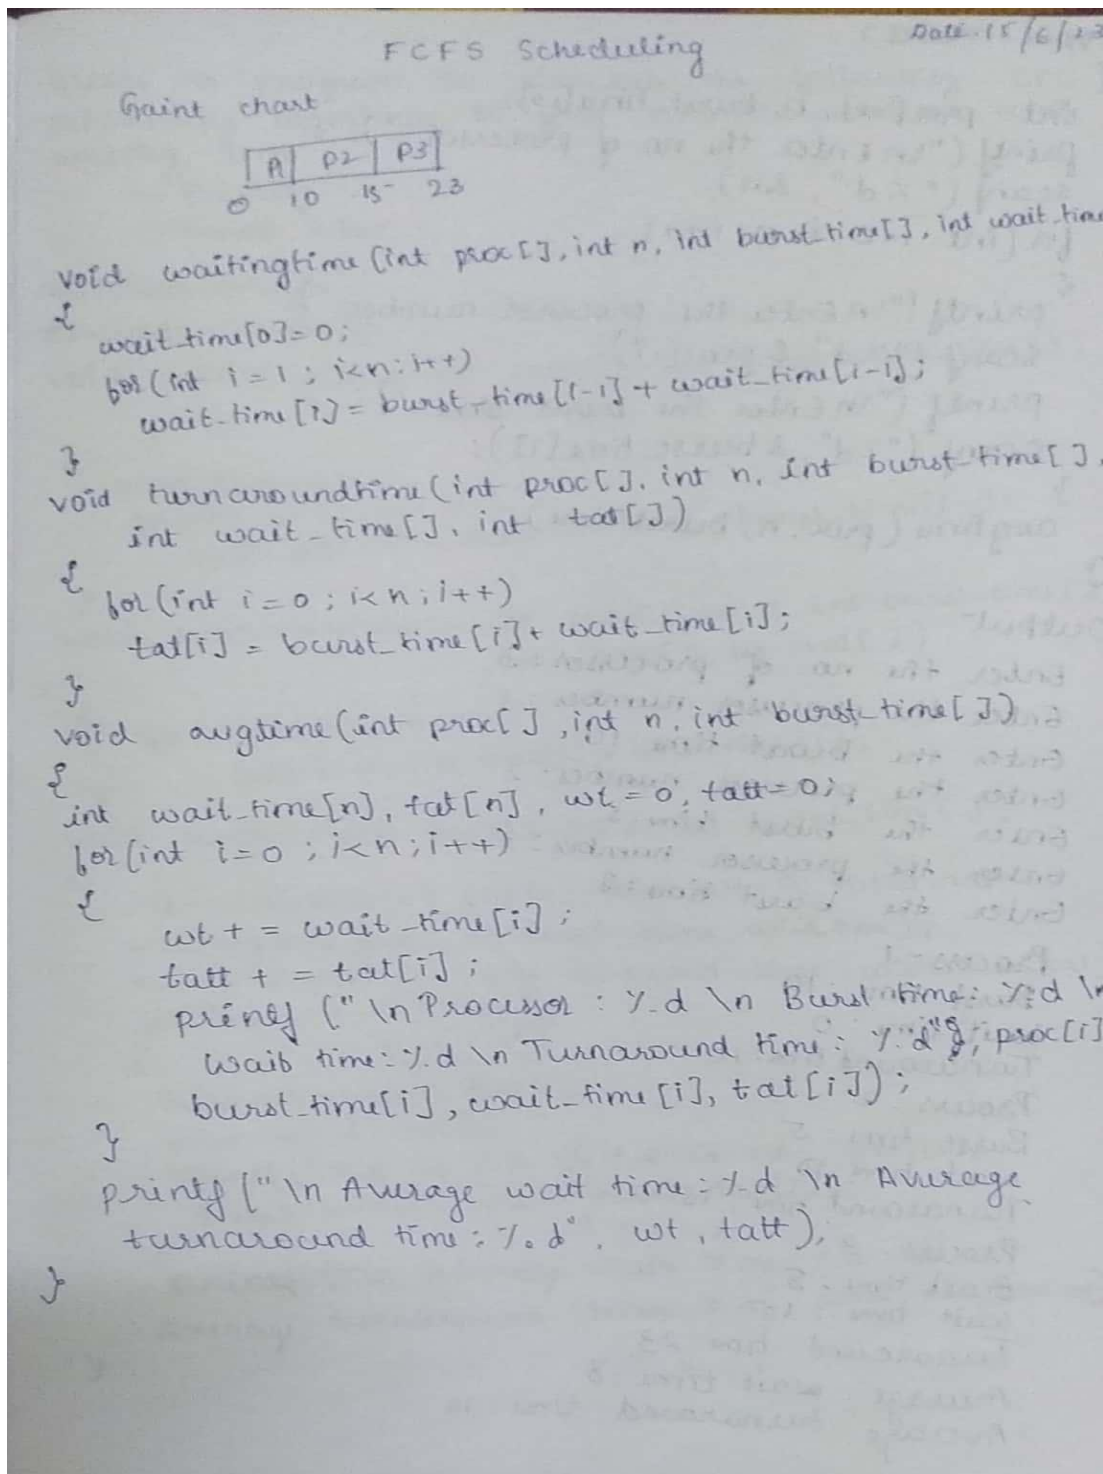 Date. 15/6/23
FCFS Scheduling
Gaint chart
P1 P2 P3
0 10 15 23
void waitingtime (int proc[], int n, int burst_time[], int wait_time
{
wait_time[0]=0;
for (int i=1; i<n; i++)
wait_time[i] = burst_time[i-1] + wait_time[i-1];
}
void turnaroundtime (int proc[], int n, int burst_time[],
int wait_time[], int tat[])
{
for (int i=0; i<n; i++)
tat[i] = burst_time[i] + wait_time[i];
}
void avgtime (int proc[], int n, int burst_time[])
{
int wait_time[n], tat[n], wt=0, tatt=0;
for (int i=0; i<n; i++)
{
wt += wait_time[i];
tatt += tat[i];
printf ("\n Processor : %d \n Burst time: %d \n
Wait time: %d \n Turnaround time: %d", proc[i]
burst_time[i], wait_time[i], tat[i]);
}
printf ("\n Average wait time: %d \n Average
turnaround time: %d", wt, tatt);
}